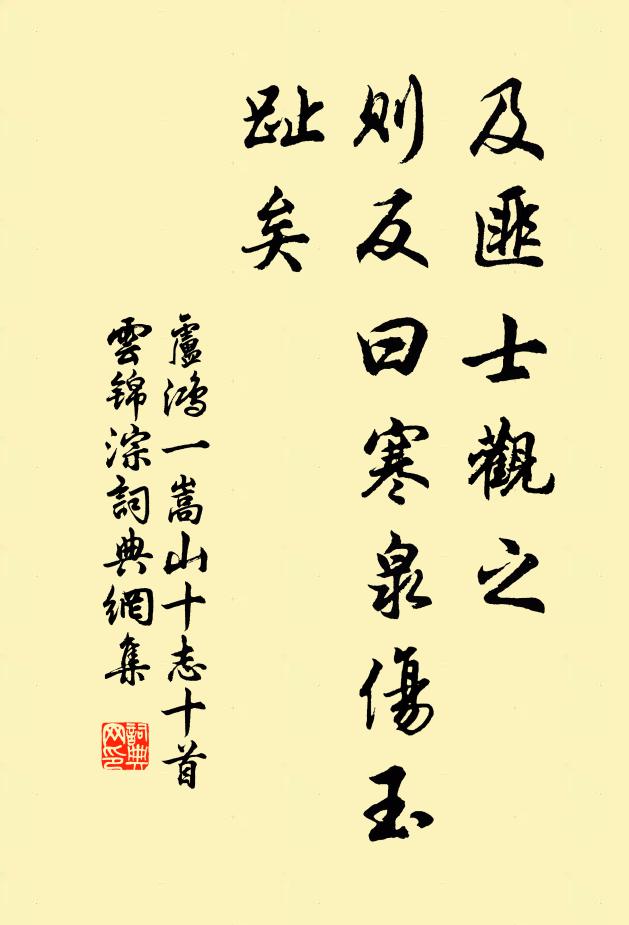 及匪士觀之
則反曰寒泉傷玉
趾矣
盧鴻一嵩山十志十首
雲錦淙詞典網集
詞典
网印